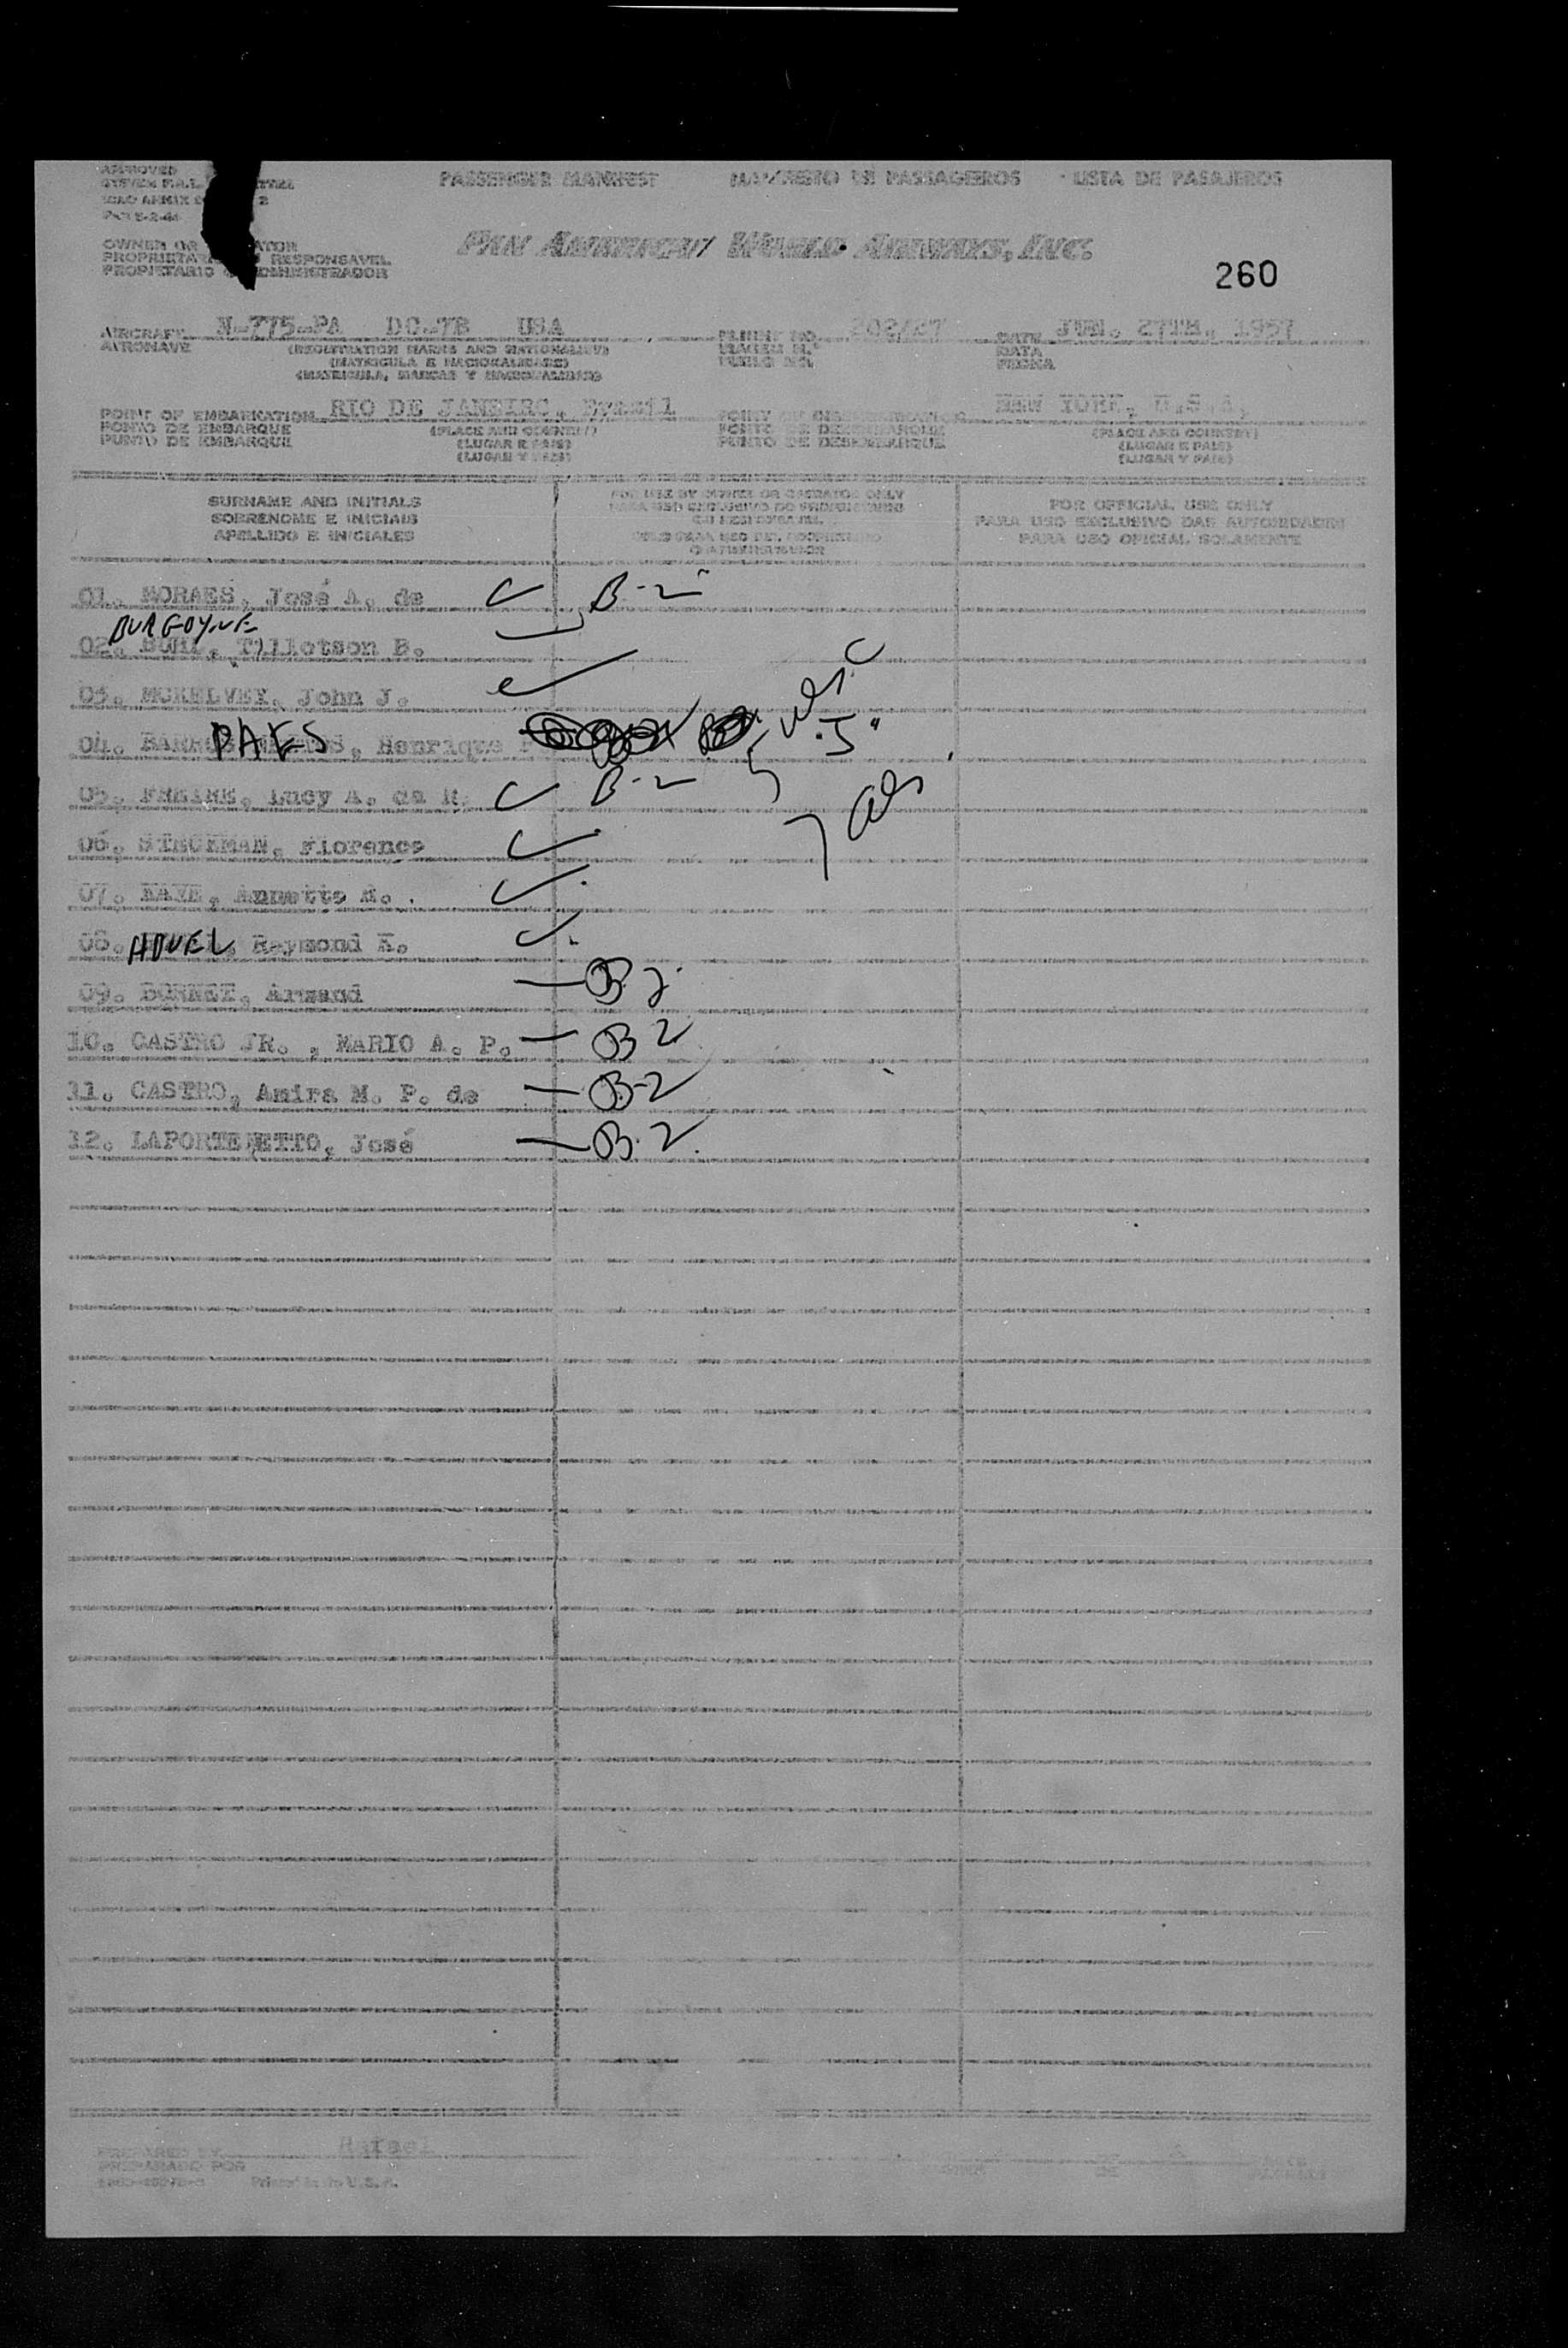 APPROVED
PASSENGER MANIFEST MANIFESTO DE PASSAGEIROS LISTA DE PASAJEROS
ICAO ANNEX 2
OWNER OR
PROPRIETAR RESPONSAVEL
PROPIETARIO ADMINISTRADOR
PAN AMERICAN WORLD AIRWAYS, INC.
260
AIRCRAFT N-775-PA DC-7B USA FLIGHT NO. 202/27 DATE JUN. 27TH, 1957
AERONAVE (REGISTRATION MARKS AND NATIONALITY) VIAGEM N.º DATA
(MATRICULA E NACIONALIDADE) VUELO NO. FECHA
(MATRICULA, MARCAS Y NACIONALIDAD)
POINT OF EMBARKATION RIO DE JANEIRO, Brazil POINT OF DISEMBARKATION NEW YORK, U.S.A.
PONTO DE EMBARQUE (PLACE AND COUNTRY) PONTO DE DESEMBARQUE (PLACE AND COUNTRY)
PUNTO DE EMBARQUE (LUGAR E PAIS) PUNTO DE DESEMBARQUE (LUGAR E PAIS)
(LUGAR Y PAIS) (LUGAR Y PAIS)
SURNAME AND INITIALS FOR USE BY OWNER OR OPERATOR ONLY FOR OFFICIAL USE ONLY
SOBRENOME E INICIAIS PARA USO EXCLUSIVO DO PROPRIETARIO PARA USO EXCLUSIVO DAS AUTORIDADES
OU RESPONSAVEL
APELLIDO E INICIALES SOLO PARA USO DEL PROPIETARIO PARA USO OFICIAL SOLAMENTE
O ADMINISTRADOR
01. MORAES, José A. de B-2
BURGOYNE
02. BUHL, Tillotson B.
03. MCKELVEY, John J.
04. PAES Henrique
05. FREIRE, Lucy A. da R. B-2
06. Florence
07. KAYE, Annette A.
08. HOUEL, Raymond K.
09. BORNET, Armand B-2
10. CASTRO JR. , MARIO A. P. B 2
11. CASTRO, Amira M. P. de B-2
12. LAPORTE NETTO, José B-2
PREPARED BY Rafael
PREPARADO POR
Printed in U.S.A.